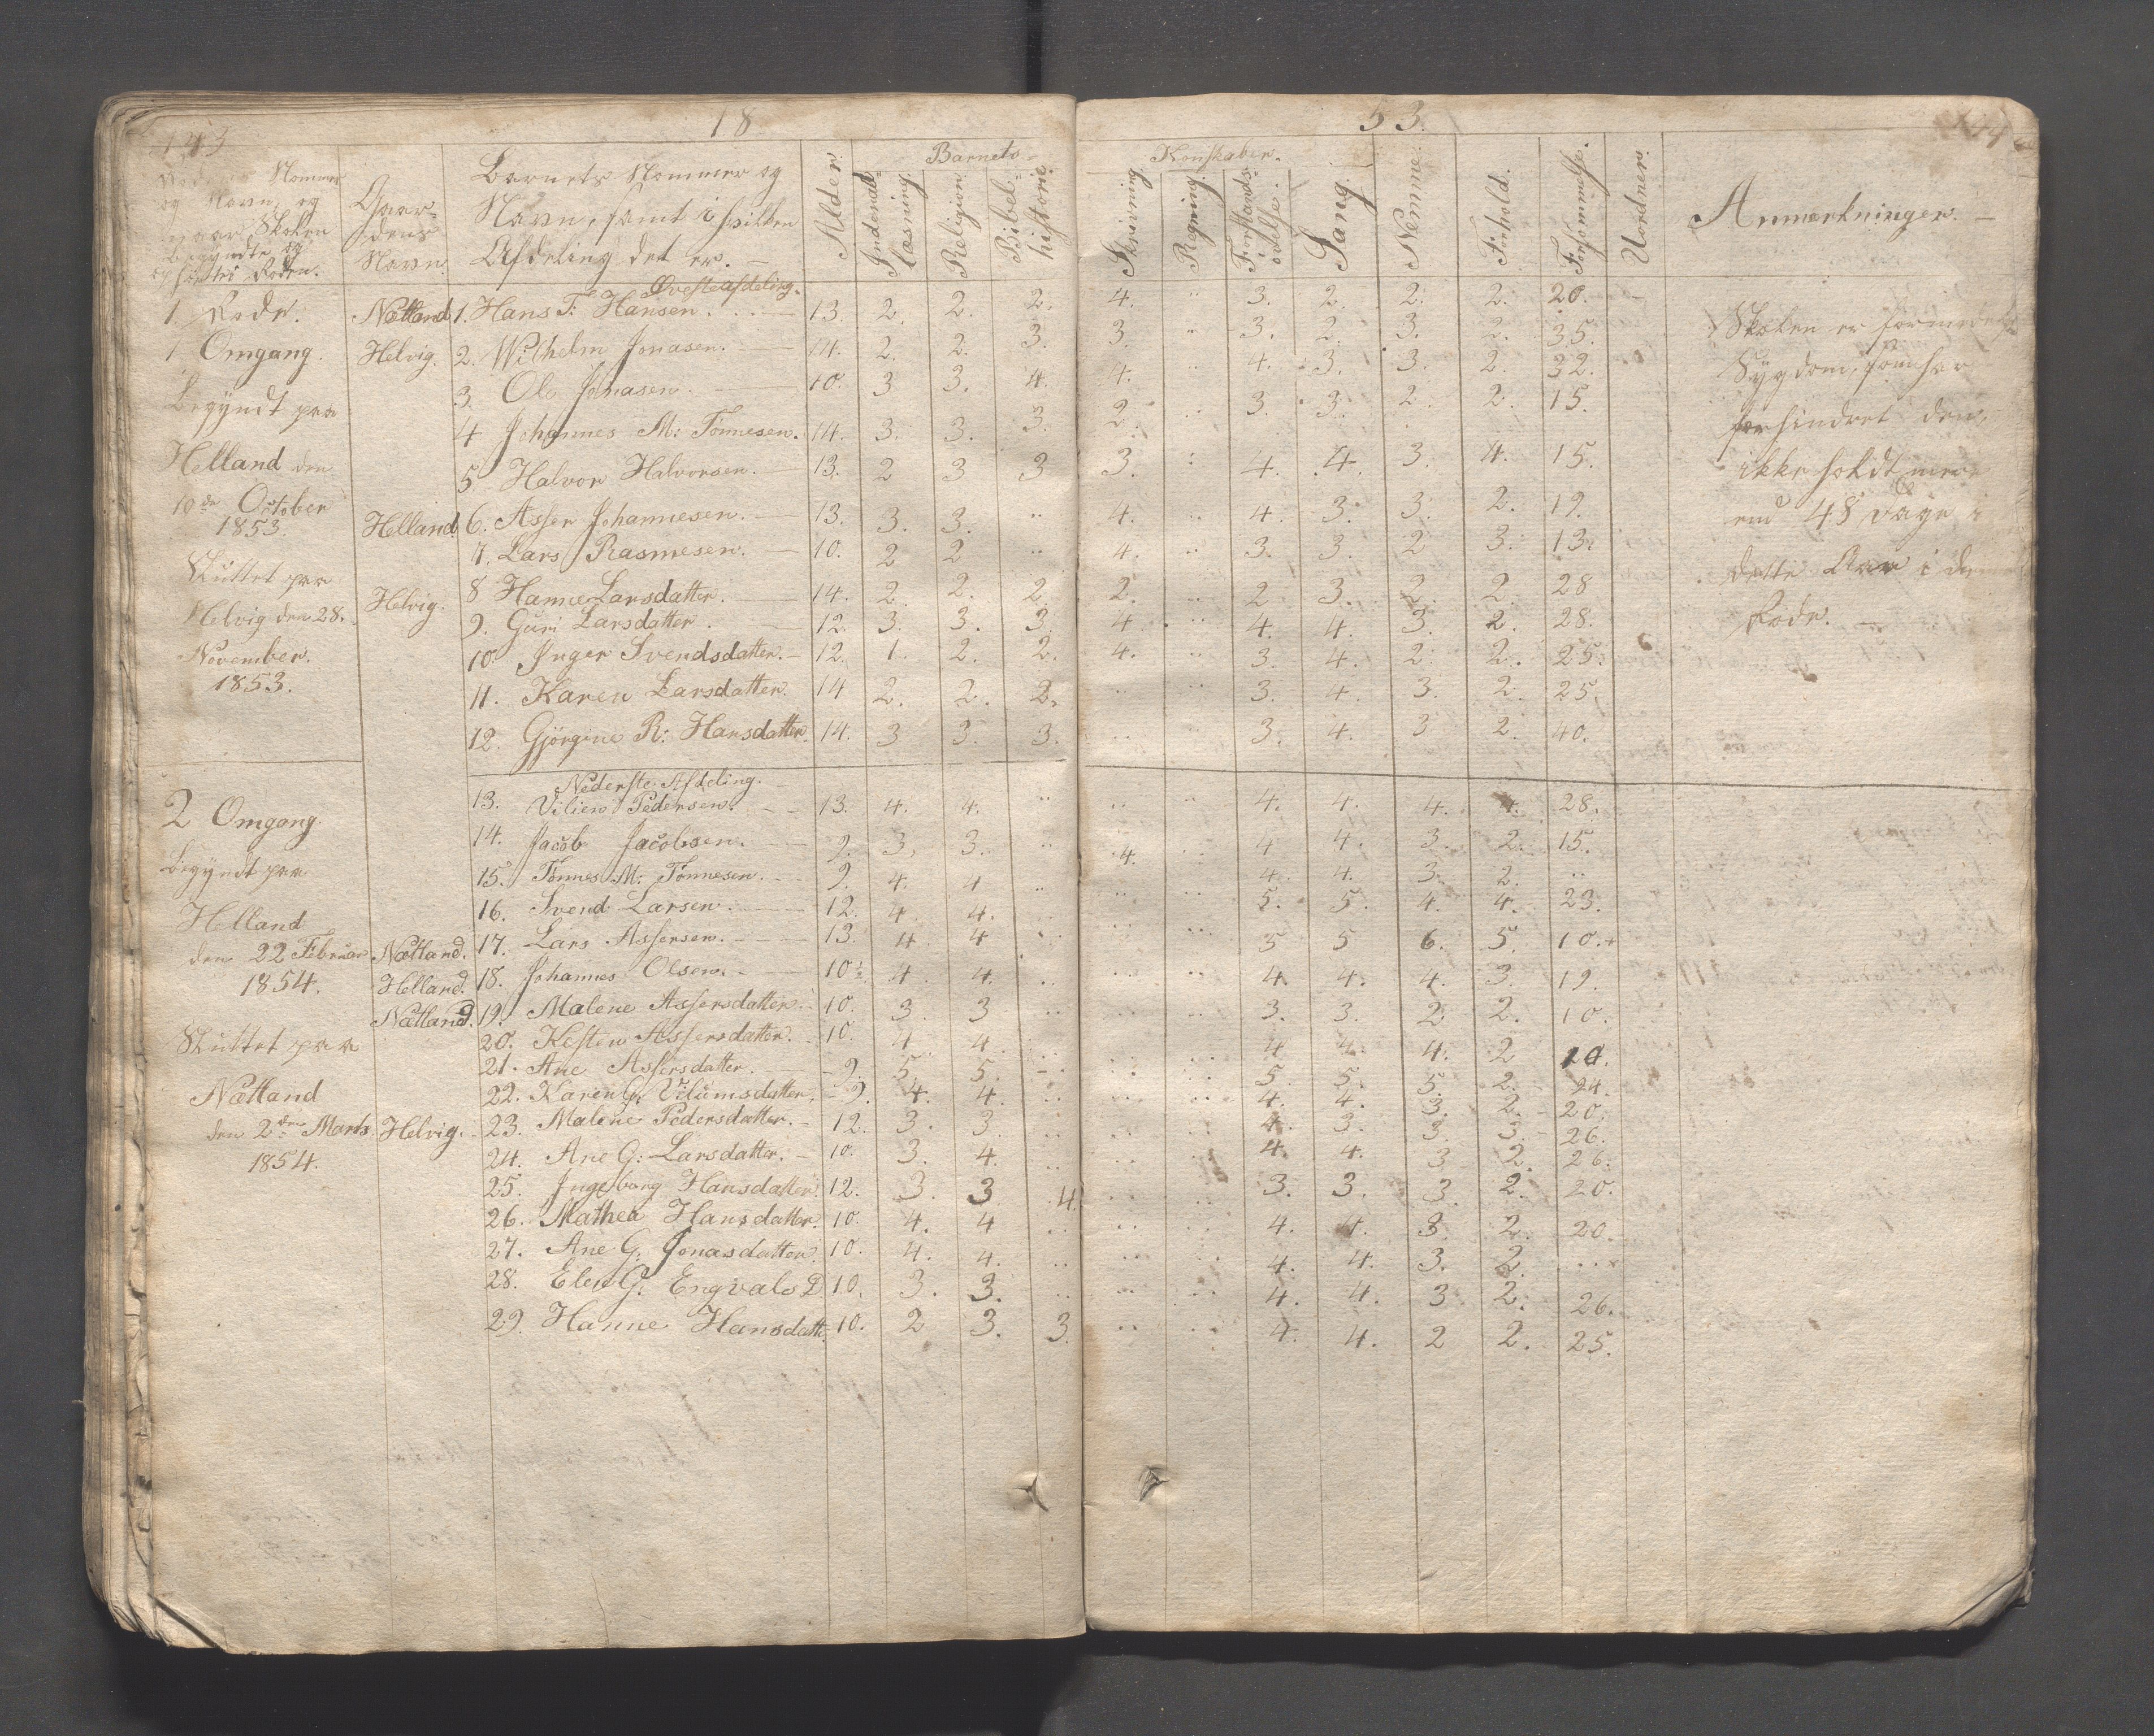 143
18
53.
Nommer
og Navn, og
naar Skolen
begyndte og
sluttes Roden.
Gaar-
dens
Navn.
Barnets Nommer og
Navn, samt i hvilken
Afdeling det er. —
Alder.
Barnets
Indenad-
læsning.
Religion.
Bibel-
historie.
Konskaber.
Skrivning
Regning.
Forstands-
øvelse.
Sang.
Nemme.
Forhold.
Forsømmelse.
Uordner.
Anmærkninger. —
Øverste afdeling.
1. Rode. Nætland 1. Hans T: Hansen. 13. 2. 2. 2. 4. .. 3. 2. 2. 2. 20.
1 Omgang. Helvig. 2. Wilhelm Jonasen. 14. 2. 2. 3. 3. .. 3. 2. 3. 2. 35.
3. Ole Jonasen. 10. 3 3. 4. 4. .. 4. 3. 3. 2. 32.
Begyndt paa 4 Johannes M: Tønnesen. 14. 3. 3. 3. 2. .. 3. 3. 2. 2. 15.
Helland den 5. Halvor Halvorsen. 13. 2 3 3 3. : 4. 4. 3. 4. 15.
10de October
1853. Helland 6. Asser Johannesen. 13. 3. 3. .. 4. .. 4. 3. 3. 2. 19.
7. Lars Rasmesen. 10. 2 2 .. 4. .. 3. 3. 2 3. 13.
Sluttet paa 8 Hanne Larsdatter. 14. 2. 2. 2. 2. .. 2 3. 2. 2. 28
Helvig den 28. Helvig. 9. Guri Larsdatter. 12. 3. 3. 3. 4. .. 4. 4. 3. 2. 28.
November. 10. Inger Svendsdatter. 12. 1. 2. 2. 4. .. 3. 4. 2. 2. 25.
1853. 11. Karen Larsdatter. 14 2. 2. 2. .. .. 3. 4. 3. 2. 25.
12. Gjørgine R: Hansdatter. 14. 3 3. 3. .. .. 3. 4. 3 2. 40.
Skolen er formedelst
Sygdom, som har
forhindret den,
ikke holdt mere
end 48 Dage i
dette Aar i denne
Rode. —
Nederste Afdeling.
13. Viliem Pedersen. 13. 4. 4. .. .. .. 4. 4. 4. 4. 28.
2 Omgang. 14. Jacob Jacobsen. 9. 3. 3. .. 4. .. 4 4. 3. 2. 15.
Begyndt paa 15. Tønnes M: Tønnesen. 9. 4. 4 .. .. .. 4. 4. 3. 2. ..
Helland 16. Svend Larsen. 12. 4. 4. .. .. .. 5. 5. 4. 4. 23.
den 22 Februar Nætland. 17. Lars Assersen. 13. 4. 4 .. .. .. 5 5 6. 5. 10.+
1854. Helland. 18. Johannes Olsen. 10. 4. 4. .. .. .. 4. 4. 4. 3. 19.
Nætland. 19. Malene Assersdatter. 10. 3. 3 .. .. .. 3. 3. 2. 2. 10.
Sluttet paa 20. Kesten Assersdatter. 10. 4. 4. .. .. .. 4 4. 4. 2 10.
21. Ane Assersdatter. 9. 5. 5. .. .. .. 5. 5. 5. 2. 24.
Nætland 22. Karen G. Vilumsdatter. 9. 4. 4. .. .. .. 4. 4. 3. 2. 20.
den 2den Marts Helvig. 23. Malene Pedersdatter. 12. 3. 3. .. .. .. 4. 3. 3. 3. 26.
1854. 24. Ane G: Larsdatter. 10. 3. 4. .. .. .. 4. 4. 3 2. 26.
25. Ingeborg Hansdatter. 12. 3. 3 4. .. .. 3. 3. 3. 2. 20.
26. Mathea Hansdatter. 10. 4. 4 .. .. .. 4. 4. 3. 2. 20.
27. Ane G. Jonasdatter. 10. 4. 4. .. .. .. 4. 4. 3. 2. ...
28. Elen G: Engvals D 10. 3. 3. .. .. .. 4. 4. 3 2. 26.
29. Hanne Hansdatt. 10. 2 3. 3. .. .. 4. 4. 2 2. 25.